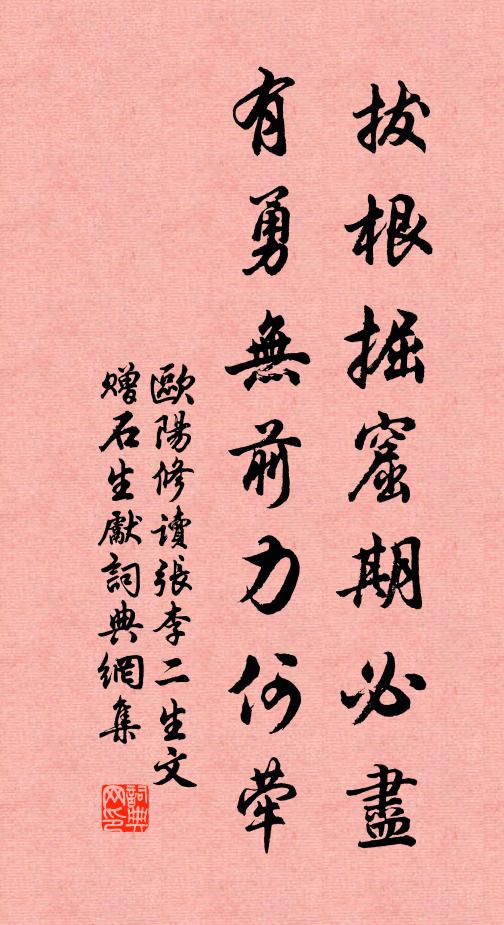 拔根掘窟期必盡
有勇無前力何犖
歐陽修讀張李二生文
贈石生獻詞典網集
詞典
网印